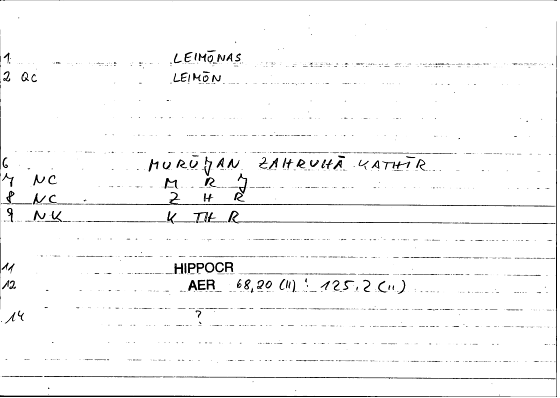 1 LEIMŌNAS
2 QC LEIMŌN
6 MURŪǦAN ZAHRUHĀ KATHĪR
7 NC M R Ǧ
8 NC Z H R
9 NK K TH R
11 HIPPOCR
12 AER 68,20 (11) : 125.2 (11)
14 ?